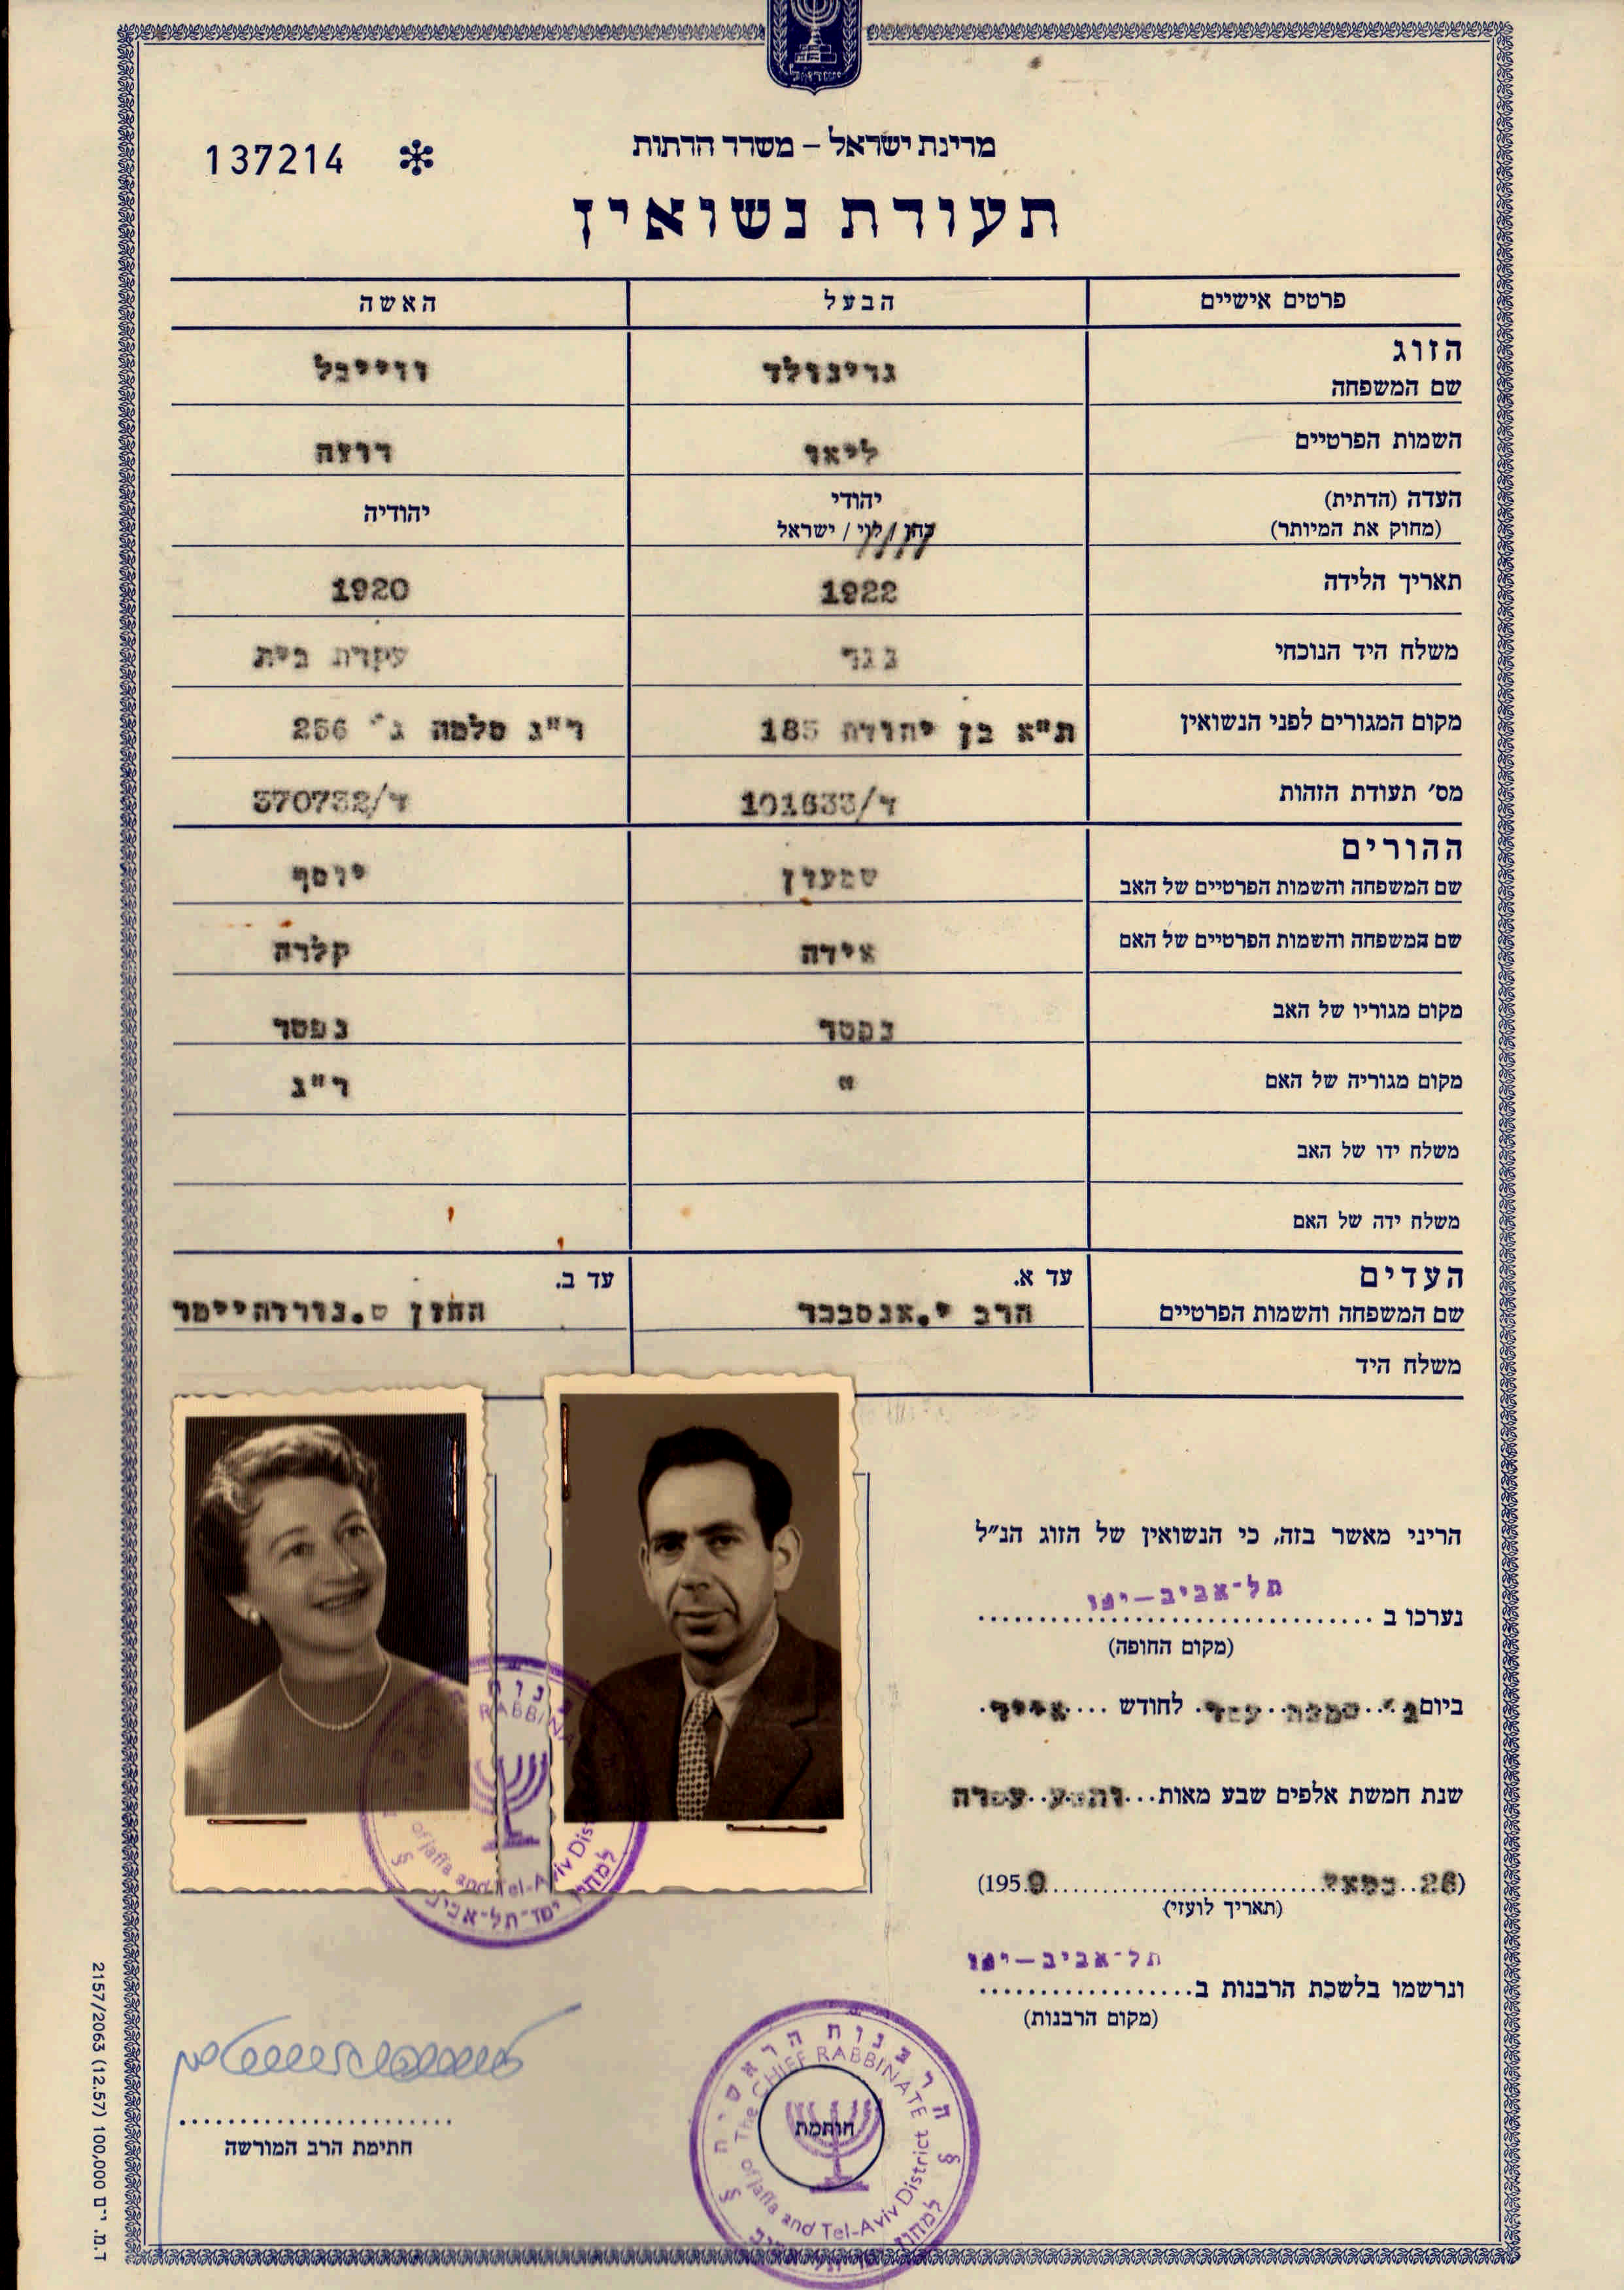 ישראל
מדינת ישראל – משרד הדתות
137214 *
תעודת נשואין
פרטים אישיים הבעל האשה
הזוג
שם המשפחה גרינולד ווייבל
השמות הפרטיים ליאו רוזה
העדה (הדתית) יהודי יהודיה
(מחוק את המיותר) כהן / לוי / ישראל
תאריך הלידה 1922 1920
משלח היד הנוכחי נגר עקרת בית
מקום המגורים לפני הנשואין ת"א בן יהודה 185 ר"ג סלמה ג' 256
מס׳ תעודת הזהות ד/101633 ד/370732
ההורים
שם המשפחה והשמות הפרטיים של האב שמעון יוסף
שם המשפחה והשמות הפרטיים של האם אידה קלרה
מקום מגוריו של האב נפטר נפטר
מקום מגוריה של האם " ר"ג
משלח ידו של האב
משלח ידה של האם
העדים עד א. עד ב.
שם המשפחה והשמות הפרטיים הרב י.אנסבכר החזן ס.נורדהיימר
משלח היד
הריני מאשר בזה, כי הנשואין של הזוג הנ״ל
נערכו ב תל-אביב–יפו
(מקום החופה)
ביום ג' שמנה עשר לחודש אייר
שנת חמשת אלפים שבע מאות ותשע עשרה
(26 במאי 1959)
(תאריך לועזי)
תל-אביב–יפו
ונרשמו בלשכת הרבנות ב
(מקום הרבנות)
הרבנות הראשית
The CHIEF RABBINATE
of Jaffa and Tel-Aviv District
חותמת
חתימת הרב המורשה
2157/2063 (12.57) 100,000 ד.מ. י־ם